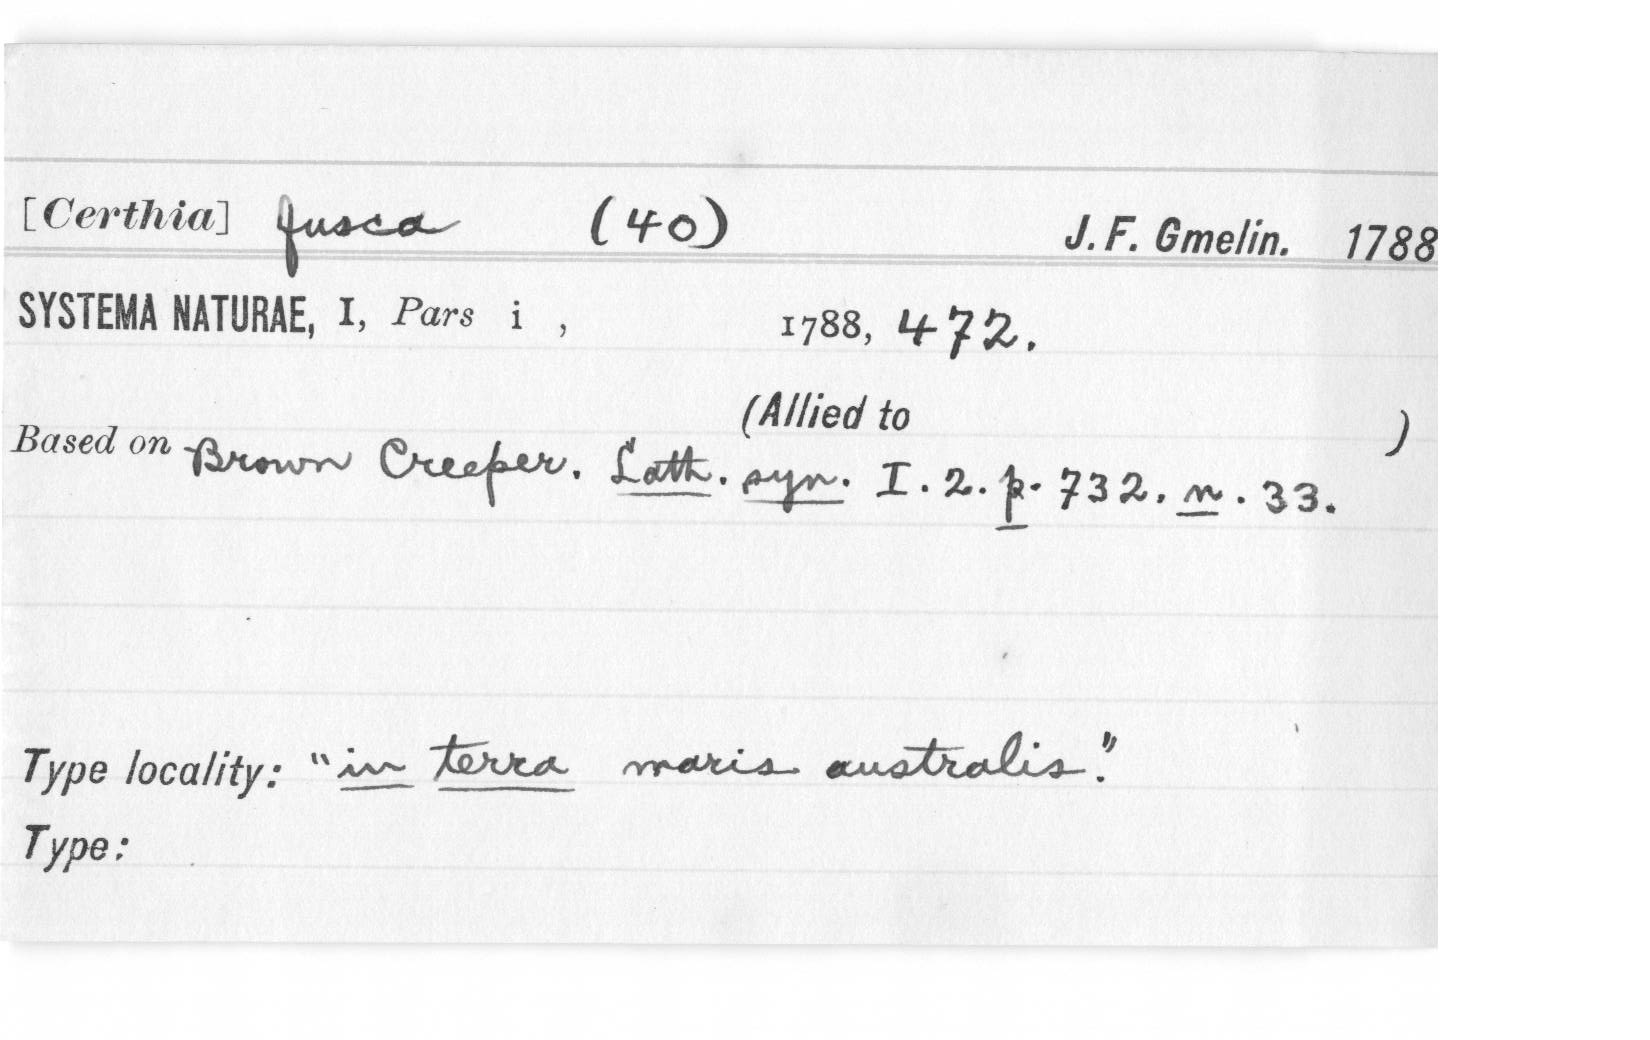 [Certhia] fusca (40) J. F. Gmelin. 1788
SYSTEMA NATURAE, I, Pars i , 1788, 472.
(Allied to )
Based on Brown Creeper. Lath. syn. I. 2. p. 732. n. 33.
Type locality: "in terra maris australis."
Type: